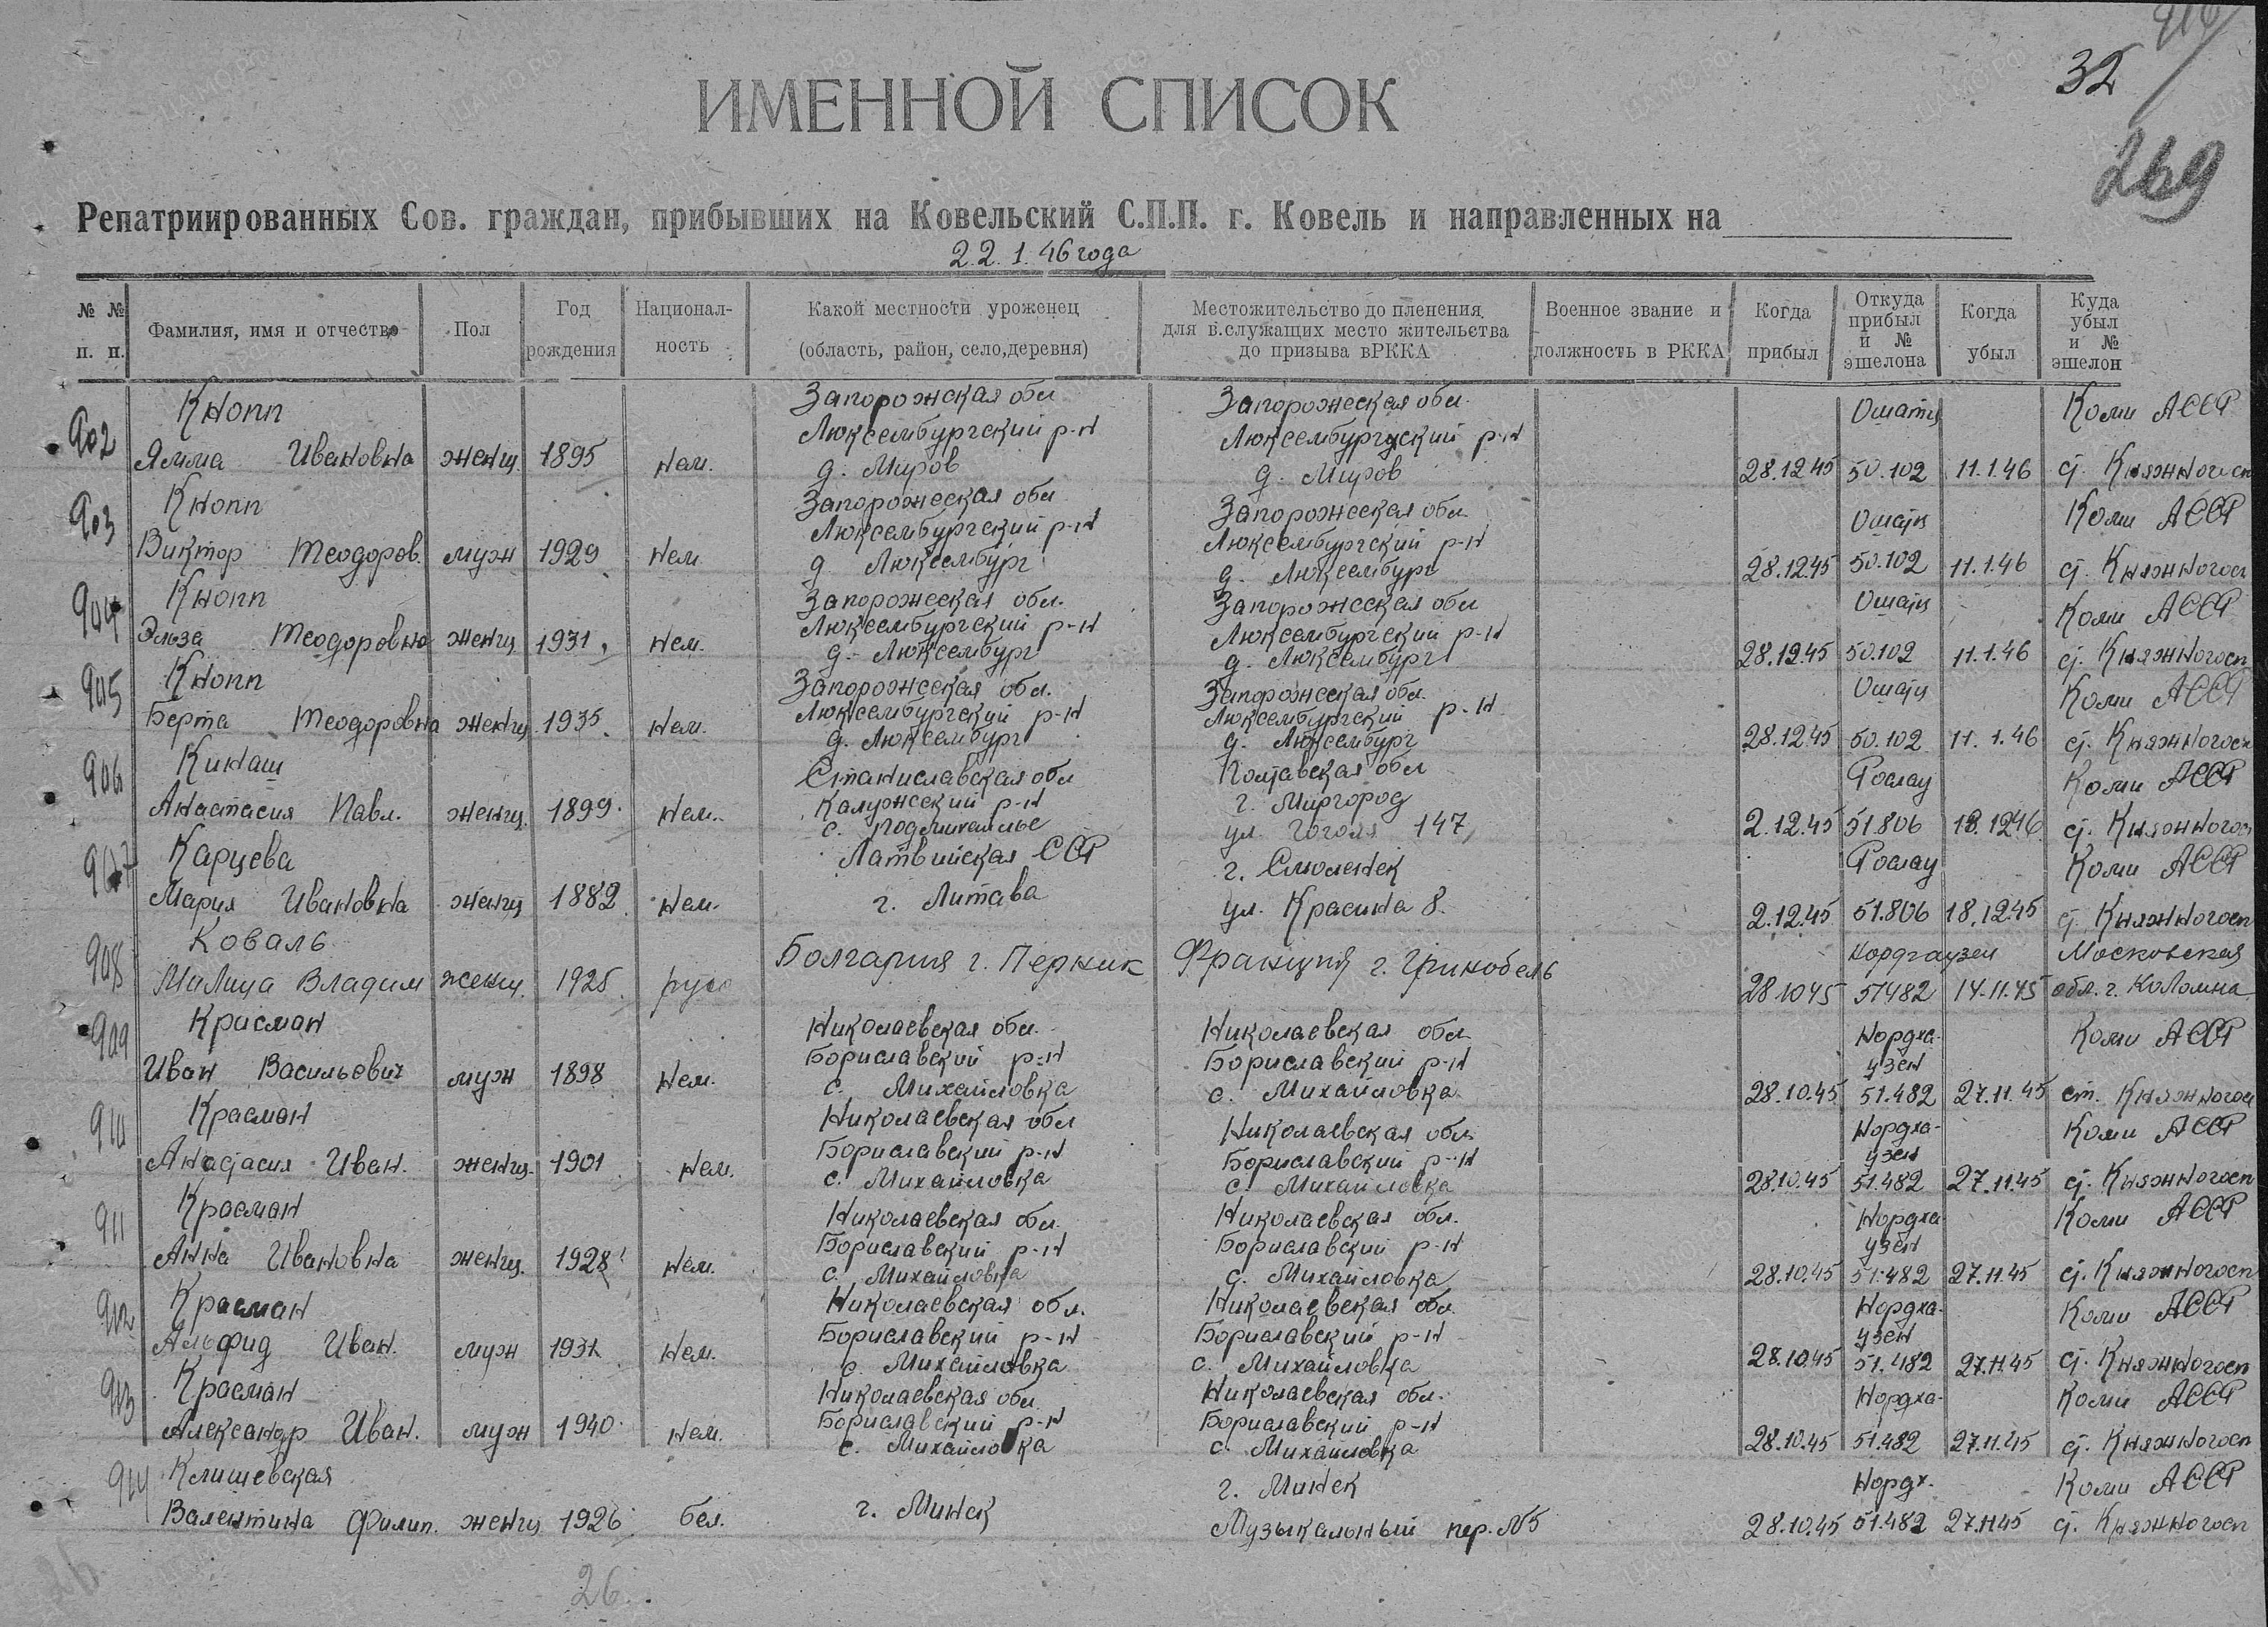 32
269
ИМЕННОЙ СПИСОК
Репатриированных Сов. граждан, прибывших на Ковельский С.П.П. г. Ковель и направленных на
22.1.46 года
№ № п. п. Фамилия, имя и отчество Пол Год рождения Национал-ность Какой местности уроженец (область, район, село,деревня) Местожительство до пленения для в.служащих место жительства до призыва вРККА Военное звание и должность в РККА Когда прибыл Откуда прибыл и № эшелона Когда убыл Куда убыл и № эшелон
Кнопп Запорожская обл Запорожеская обл. Ошатц Коми АССР
902 Люксембургский р-н Люксембургуский р-н
Ямма Ивановна женщ. 1895 нем. д. Миров д. Миров 28.12.45 50.102 11.1.46 ст. Княжногосп
Кнопп Запорожеская обл Запорожеская обл. Ошатц Коми АССР
903 Люксембургский р-н Люксембургский р-н
Виктор Теодоров. муж 1929 нем. д. Люксембург д. Люксембург 28.12.45 50.102 11.1.46 ст. Княжногосп
Кнопп Запорожеская обл. Запорожеская обл Ошатц Коми АССР
904 Люксембургский р-н Люксембургский р-н
Эльза Теодоровна женщ 1931 нем. д. Люксембург д. Люксембург 28.12.45 50.102 11.1.46 ст. Княжногосп
Кнопп Запорожеская обл. Запорожеская обл. Ошатц Коми АССР
905 Люксембургский р-н Люксембургский р-н
Берта Теодоровна женщ. 1935 нем. д. Люксембург д. Люксембург 28.12.45 50.102 11.1.46 ст. Княжногосп
Кинаш Станиславская обл Полтавская обл Рослау Коми АССР
906 Калужеский р-н г. Миргород
Анастасия Павл. женщ. 1899 нем. с. Подмихаилье ул. Гоголя 147 2.12.45 51.806 18.1246 ст. Княжногосп
Карцева Латвийская ССР г. Смоленск Рослау Коми АССР
907
Мария Ивановна женщ 1882 нем. г. Литава ул. Красина 8. 2.12.45 51.806 18.12.45 ст. Княжногосп
Коваль Болгария г. Перник Франция г. Гринобель Нордгаузен Московская
908
Милица Владим женщ. 1925 русс 28.10 45 51482 14.11.45 обл. г. Коломна
Крисман Николаевская обл. Николаевская обл Нордха- Коми АССР
909 Бориславский р-н Бориславский р-н узен
Иван Васильевич муж 1898 нем. с. Михайловка с. Михайловка 28.10.45 51.482 27.11.45 ст. Княжногосп
Красман Николаевская обл Николаевская обл. Нордха- Коми АССР
910 Бориславский р-н Бориславский р-н узен
Анастасия Иван. женщ. 1901 нем. с. Михайловка с. Михайловка 28.10.45 51.482 27.11.45 ст. Княжногосп
Красман Николаевская обл. Николаевская обл. Нордха- Коми АССР
911 Бориславский р-н Бориславский р-н узен
Анна Ивановна женщ. 1928 нем. с. Михайловка с. Михайловка 28.10.45 51.482 27.11.45 ст. Княжногосп
Красман Николаевская обл. Николаевская обл. Нордха- Коми АССР
912 Бориславский р-н Бориславский р-н узен
Альфид Иван. муж нем. с. Михайловка с. Михайловка 28.10.45 51.482 27.11.45 ст. Княжногосп
Красман Николаевская обл. Николаевская обл. Нордха- Коми АССР
913 Бориславский р-н Бориславский р-н
Александр Иван. муж 1940 нем. с. Михайловка с. Михайловка 28.10.45 51.482 27.11.45 ст. Княжногосп
Клишевская г. Минск Нордх. Коми АССР
914
Валентина Филип. женщ 1926 бел. г. Минск Музыкальный пер. №5 28.10.45 51.482 27.11.45 ст. Княжногосп
26